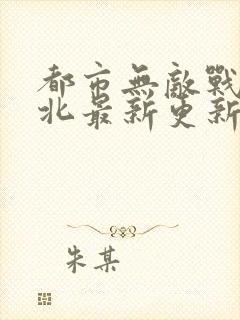 都市無敵戰
北最新更新
朱某